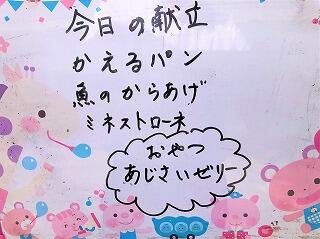 今日の献立
かえるパン
魚のからあげ
ミネストローネ
おやつ
あじさいゼリー